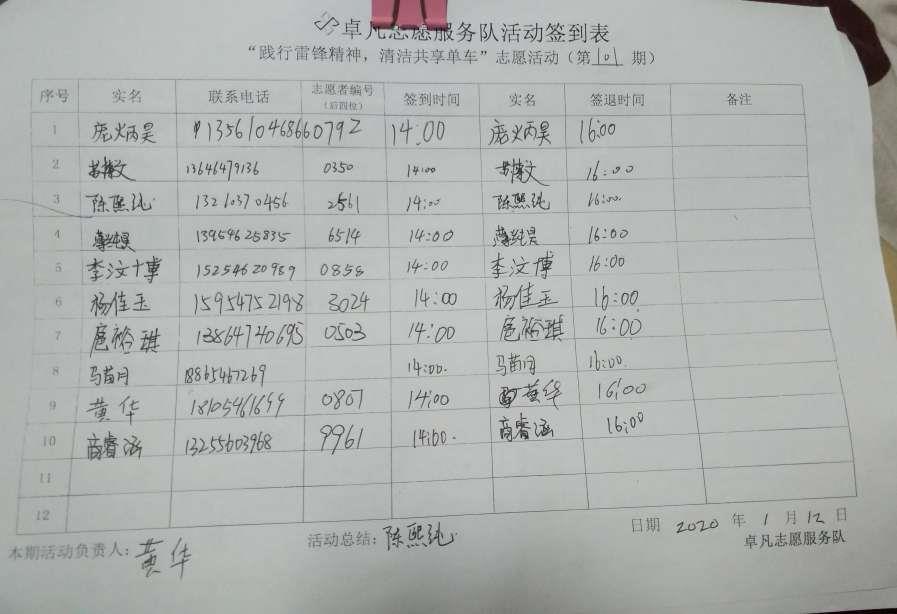 卓凡志愿服务队活动签到表
“践行雷锋精神，清洁共享单车”志愿活动（第101期）
序号 实名 联系电话 志愿者编号（后四位） 签到时间 实名 签退时间 备注
1 庞炳昊 13561046866 0792 14:00 庞炳昊 16:00
2 13646479136 0350 14:00 16:00
3 陈熙纯 13210370456 2561 14:00 陈熙纯 16:00
4 13954625835 6514 14:00 16:00
5 李汶博 15254620989 0858 14:00 李汶博 16:00
6 杨佳玉 15954752198 3024 14:00 杨佳玉 16:00
7 扈裕琪 13864740695 0503 14:00 扈裕琪 16:00
8 马苗月 18865467269 14:00. 马苗月 16:00.
9 黄华 18105461699 0867 14:00 黄华 16:00
10 商睿涵 13255603968 9961 14:00. 商睿涵 16:00
11
12
日期 2020 年 1 月 12 日
本期活动负责人：黄华 活动总结：陈熙纯 卓凡志愿服务队